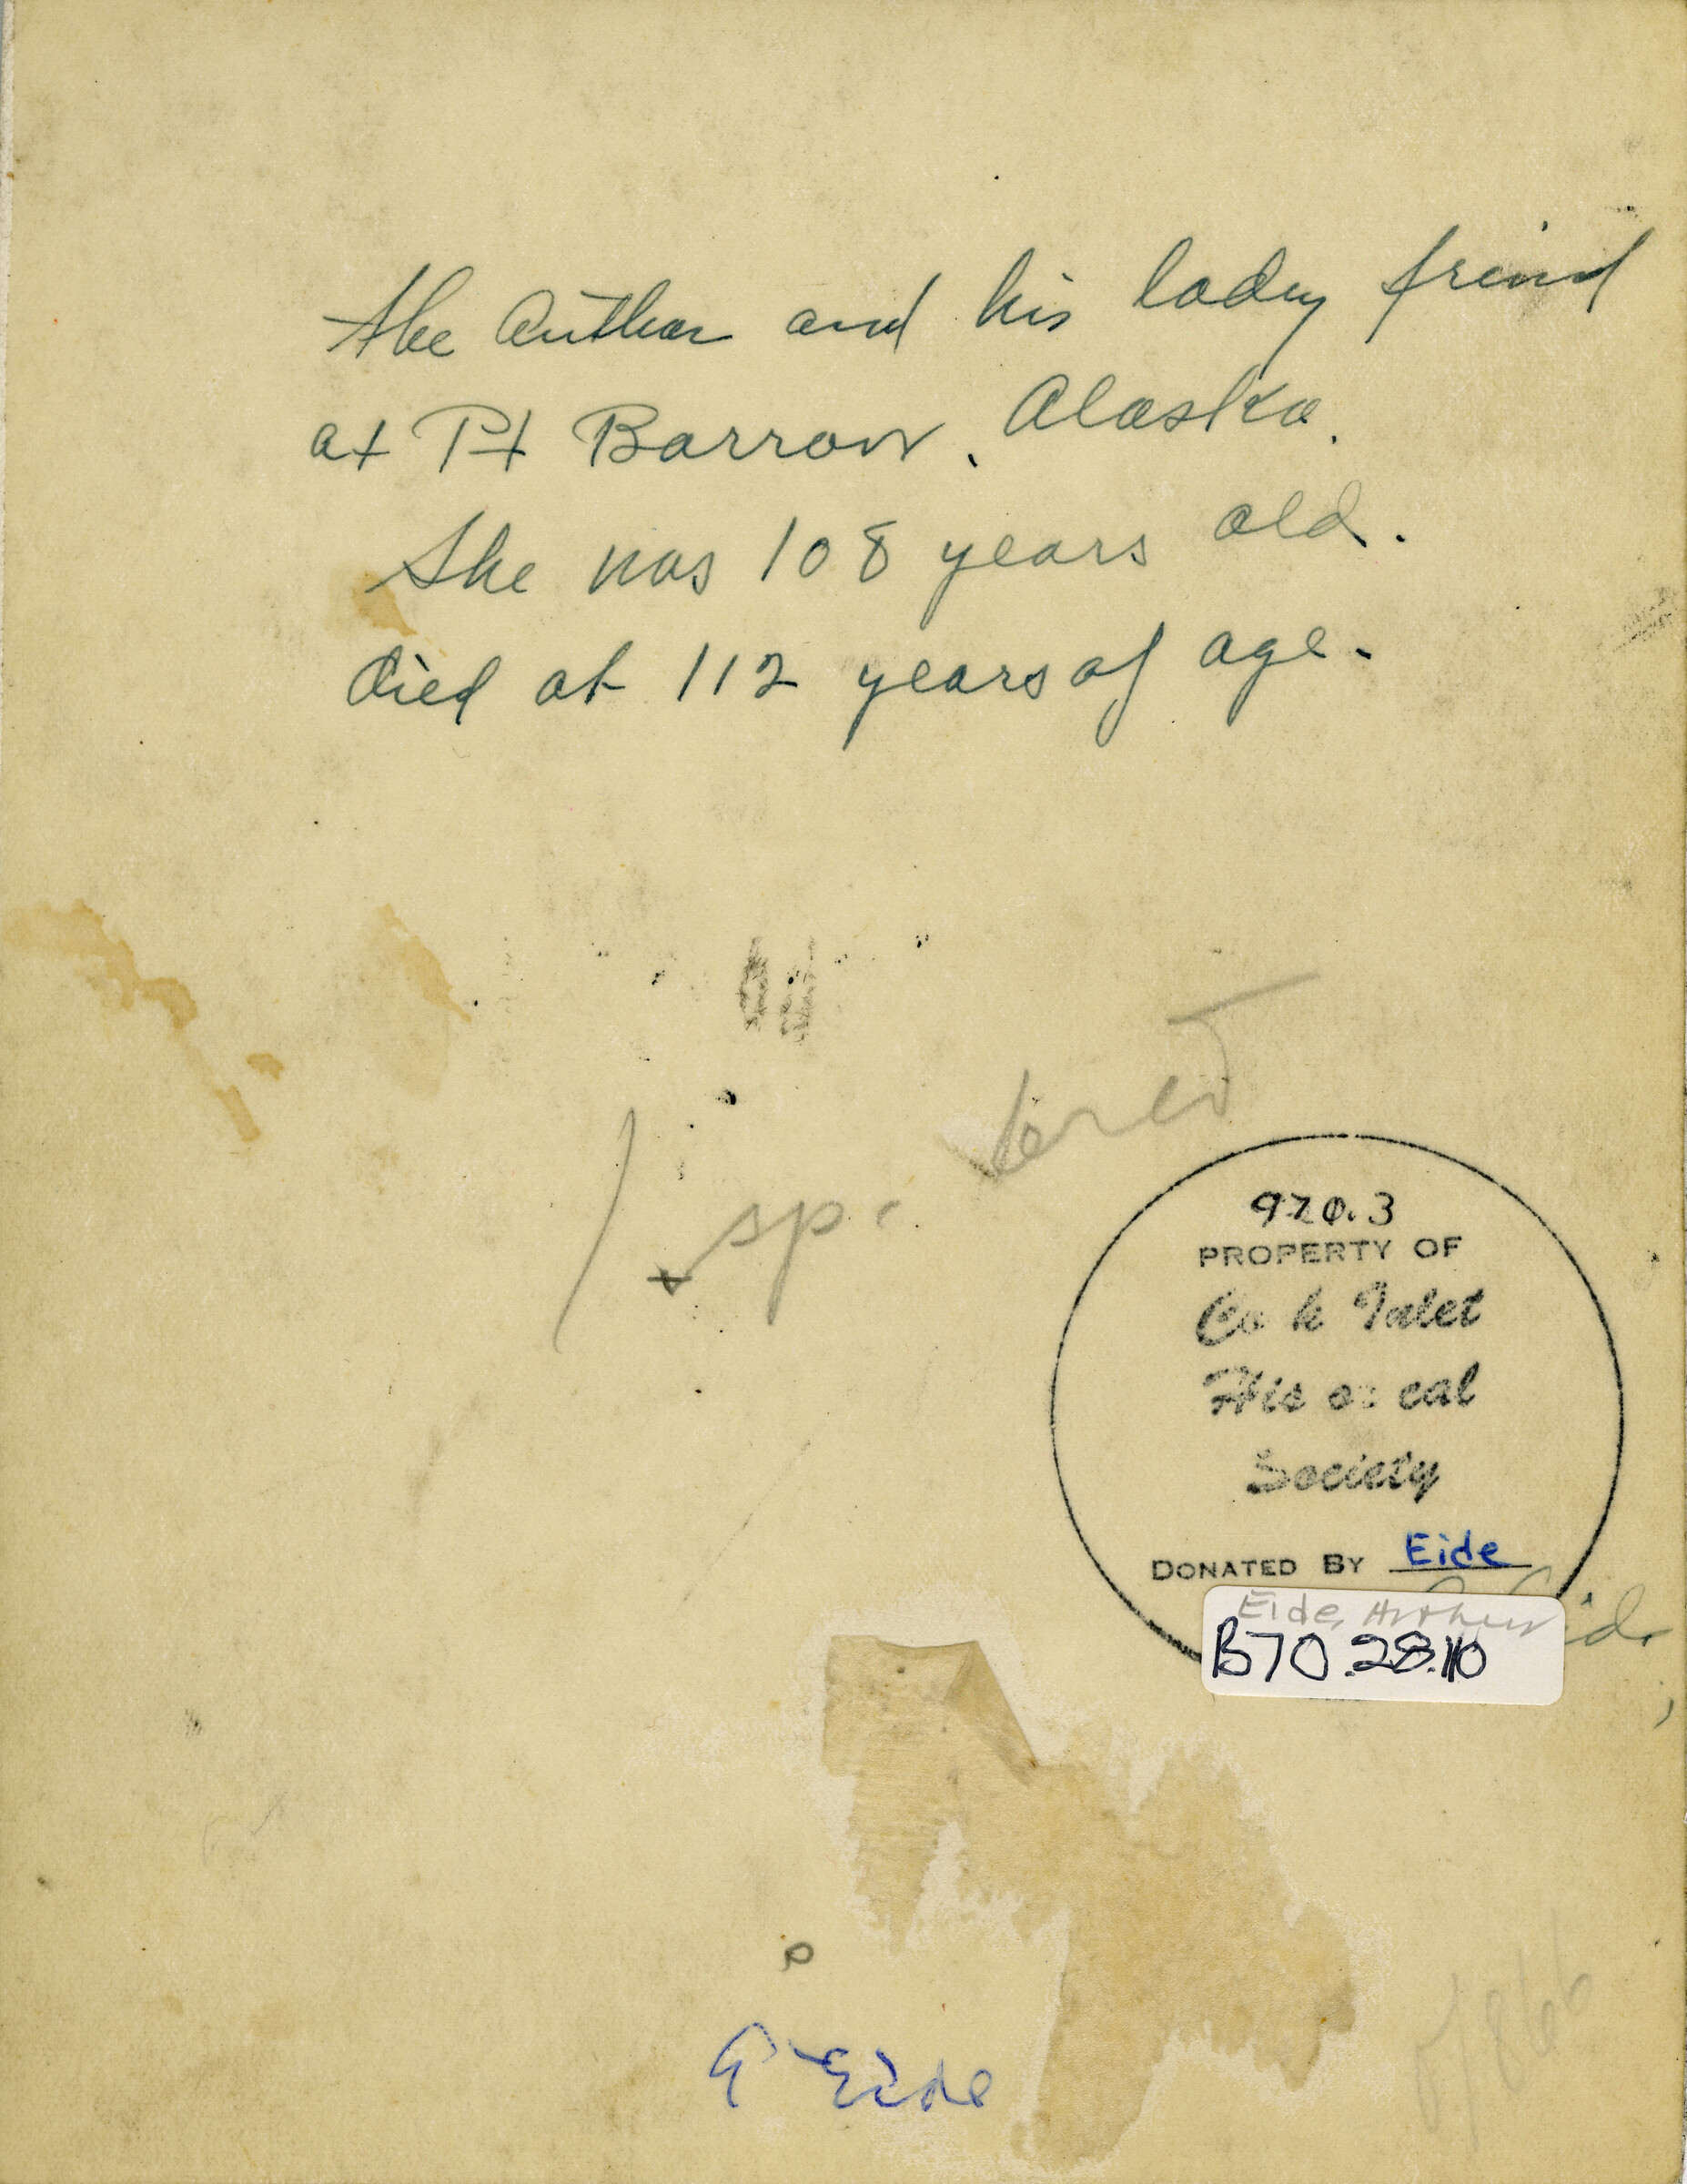 The Author and his lady freind
at Pt Barrow. Alaska.
She was 108 years old.
died at 112 years of age.
sp.
920.3
PROPERTY OF
Co k Inlet
His or cal
Society
DONATED BY Eide
Eide, Arthur
B70.28.110
Eide